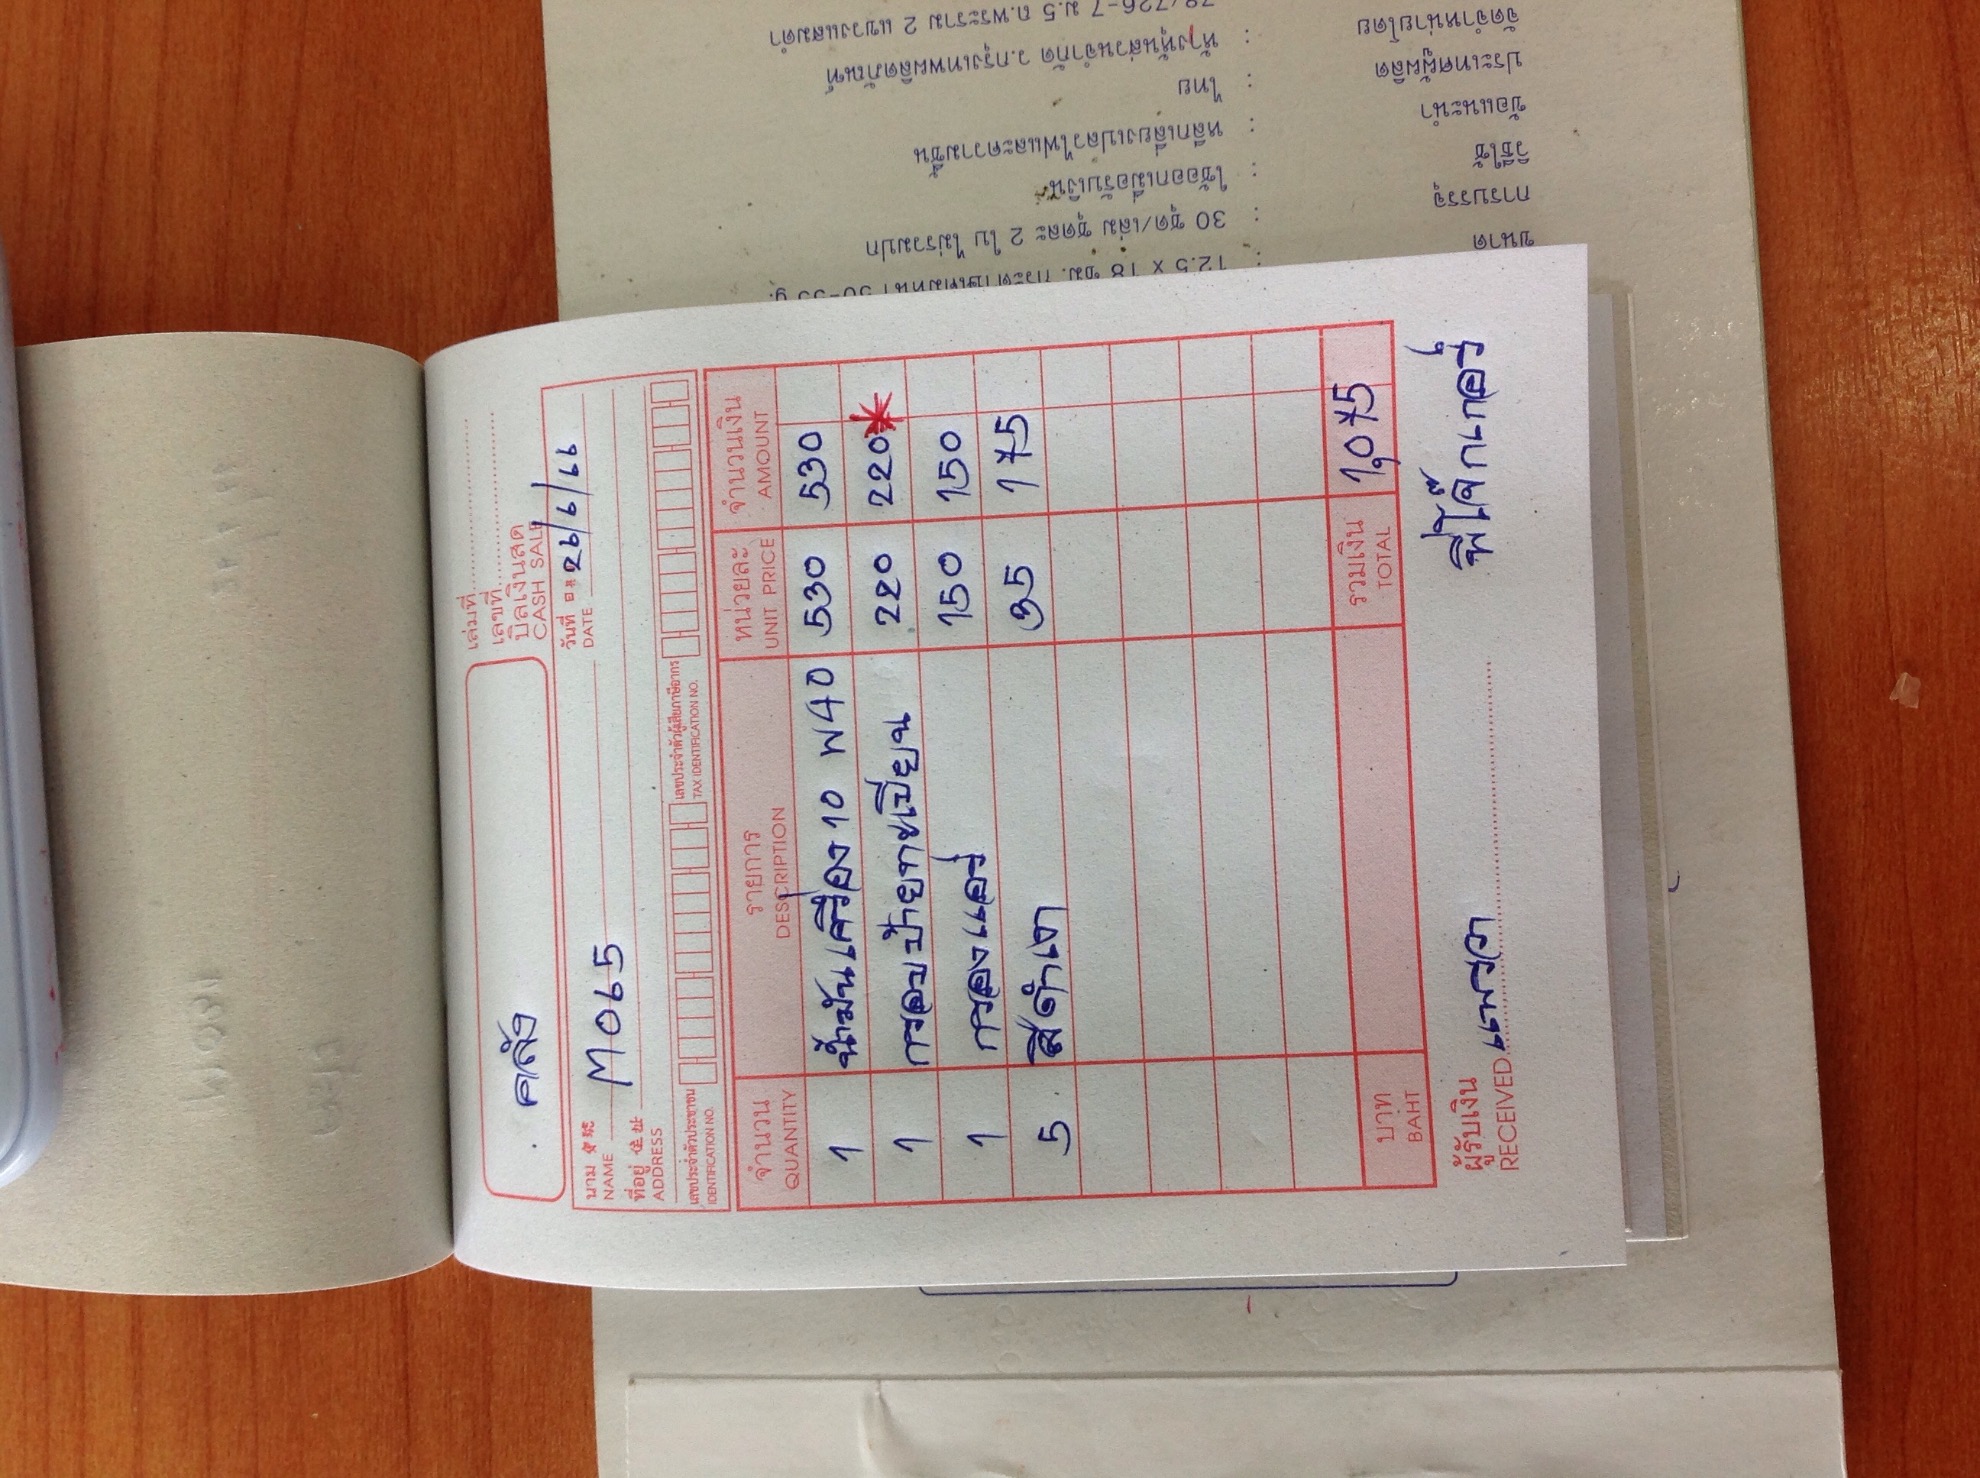 เล่มที่
เลขที่
บิลเงินสด
CASH SALE
คลัง
วันที่ 26/6/66
DATE
นาม M065
NAME
ที่อยู่
ADDRESS
เลขประจำตัวประชาชน เลขประจำตัวผู้เสียภาษีอากร
IDENTIFICATION NO. TAX IDENTIFICATION NO.
จำนวน รายการ หน่วยละ จำนวนเงิน
QUANTITY DESCRIPTION UNIT PRICE AMOUNT
1 น้ำมันเครื่อง 10 W40 530 530
1 กรอบป้ายทะเบียน 220 220*
1 กรองแอร์ 150 150
5 สีดำเงา 35 175
บาท รวมเงิน 1,075
BAHT TOTAL
ผู้รับเงิน แพรวา
RECEIVED
78/726-7 ม.5 ถ.พระราม 2 แขวงแสมดำ
จัดจำหน่ายโดย : ห้างหุ้นส่วนจำกัด ว.กรุงเทพผลิตภัณฑ์
ประเทศผู้ผลิต : ไทย
ข้อแนะนำ : หลีกเลี่ยงเปลวไฟและความชื้น
วิธีใช้ : ใช้ออกเมื่อรับเงิน
การบรรจุ : 30 ชุด/เล่ม ชุดละ 2 ใบ ไม่รวมปก
ขนาด : 12.5 x 18 ซม.